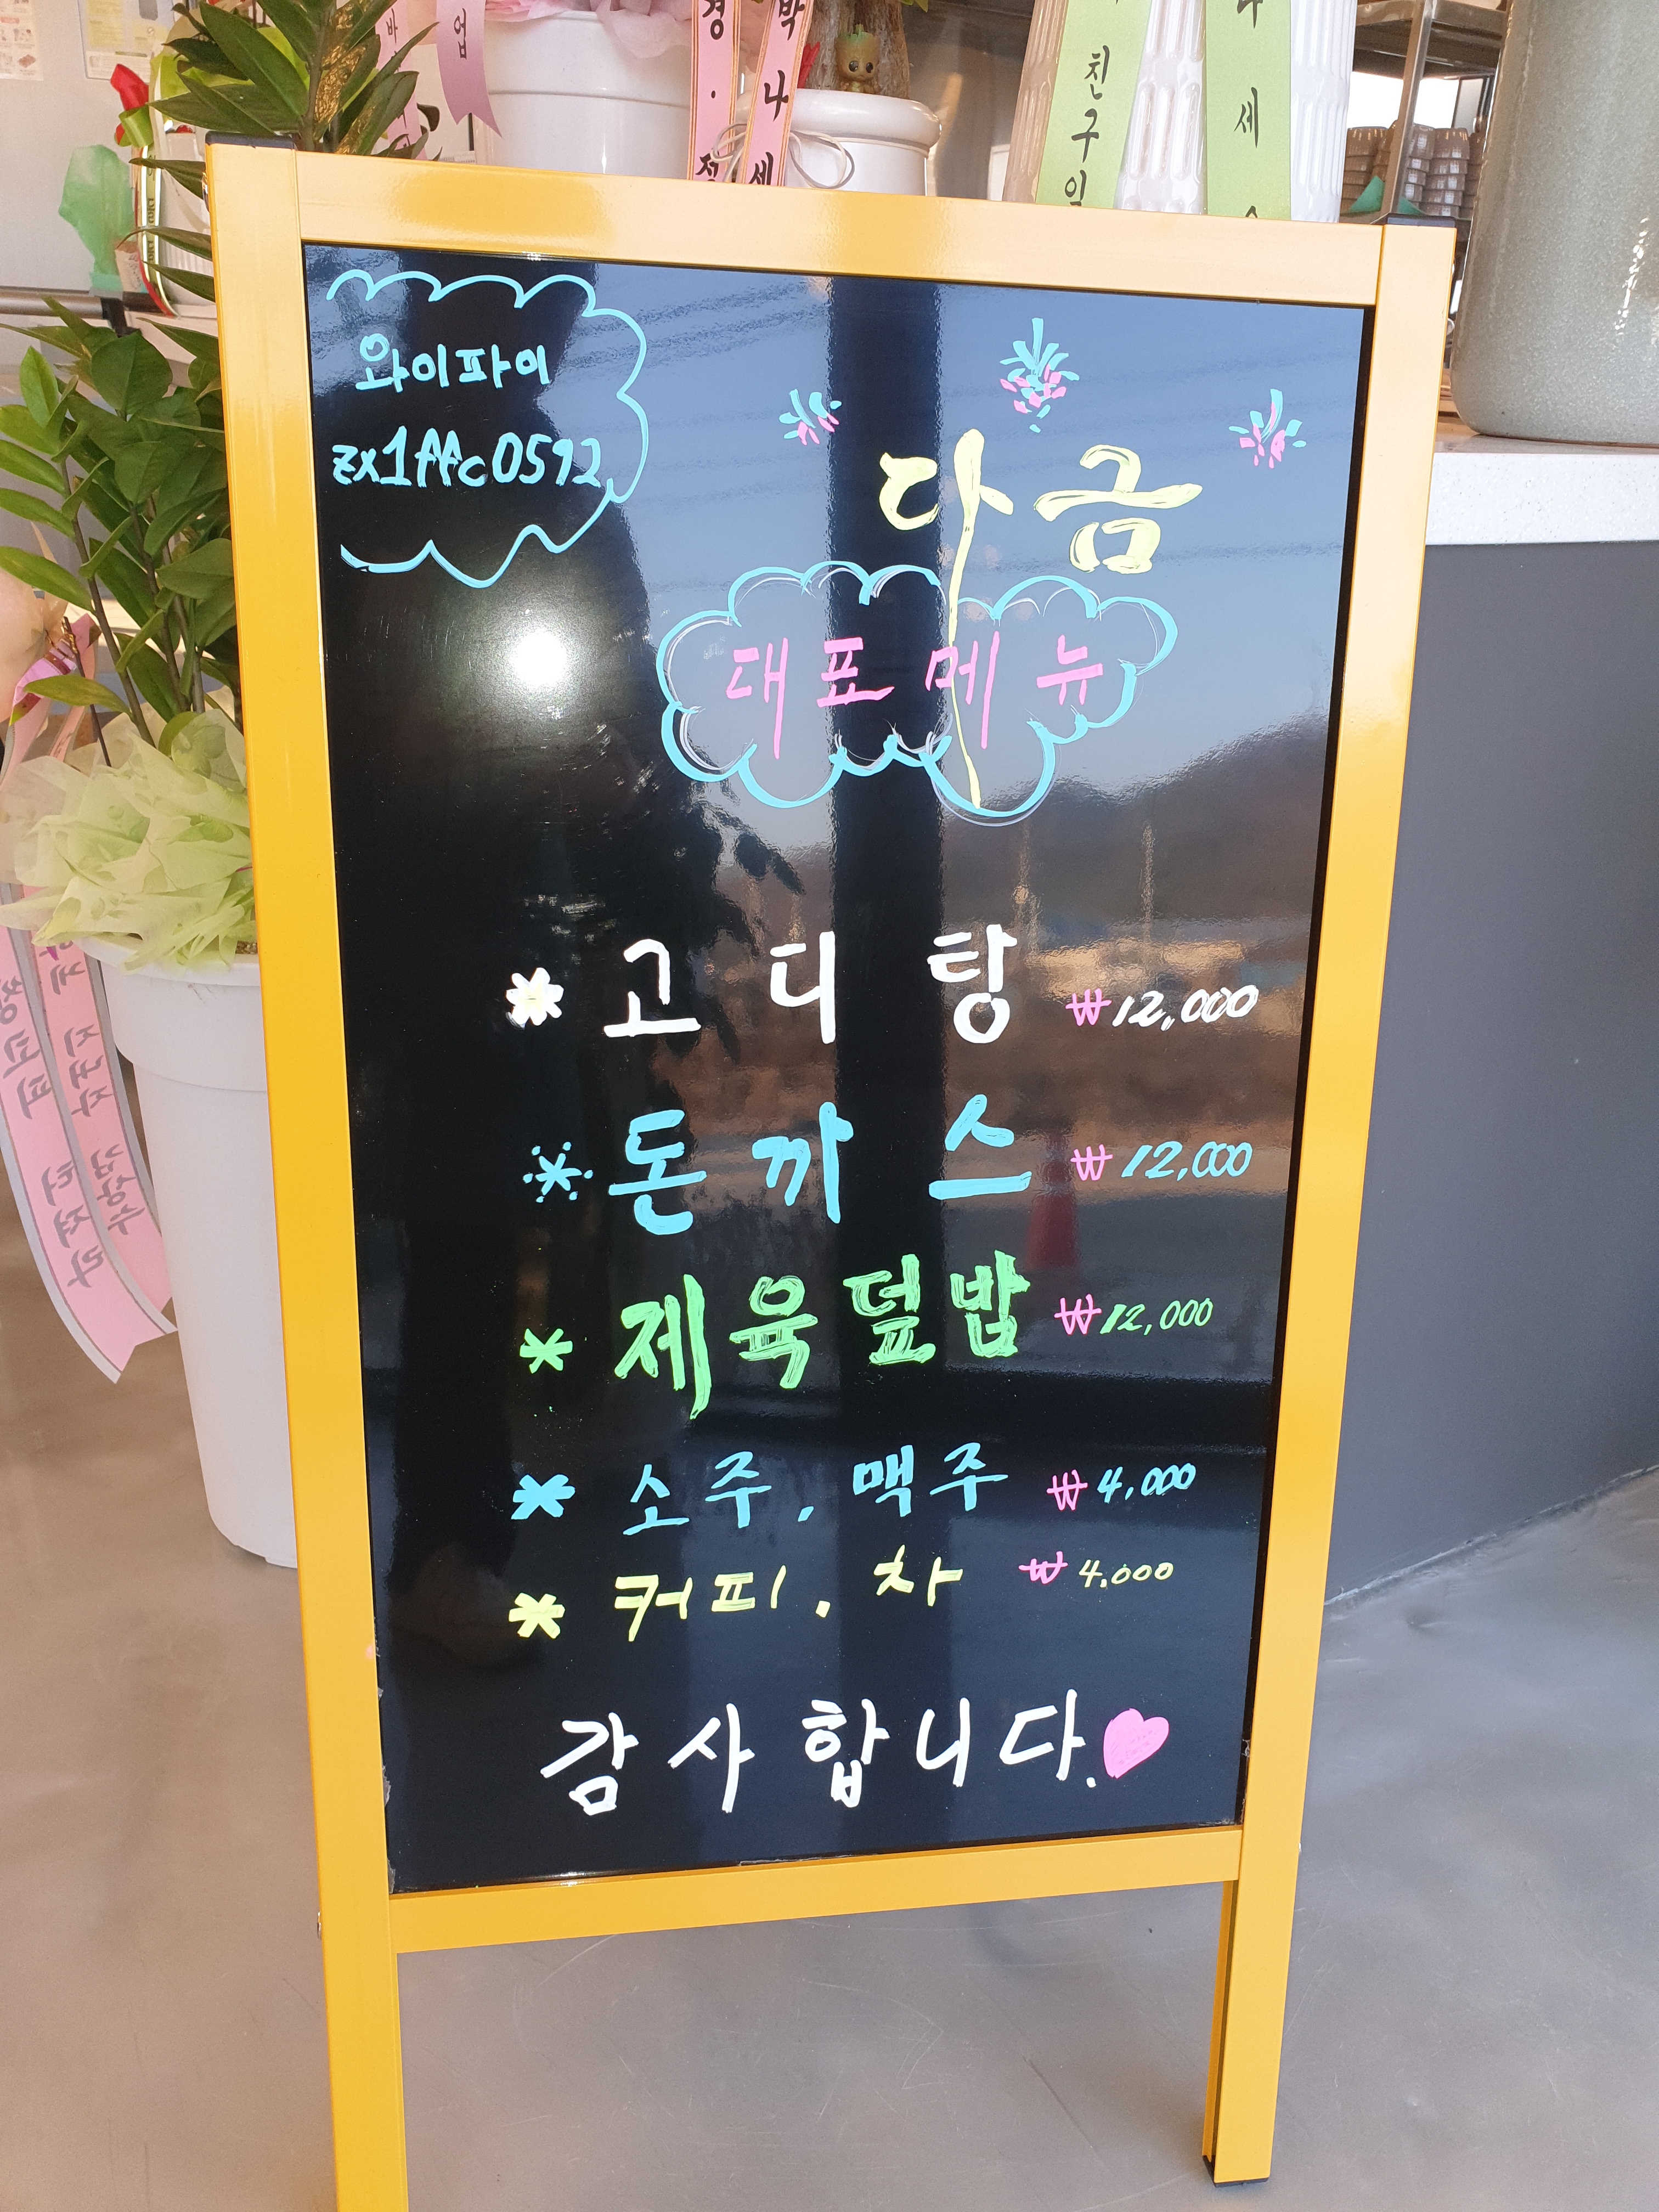 업
경·정
박나세
친구일
나세
와이파이
zx1ffc0592
다금
대표메뉴
* 고디탕 ₩12,000
* 돈까스 ₩12,000
* 제육덮밥 ₩12,000
* 소주. 맥주 ₩4,000
* 커피. 차 ₩4.000
감사합니다.♥